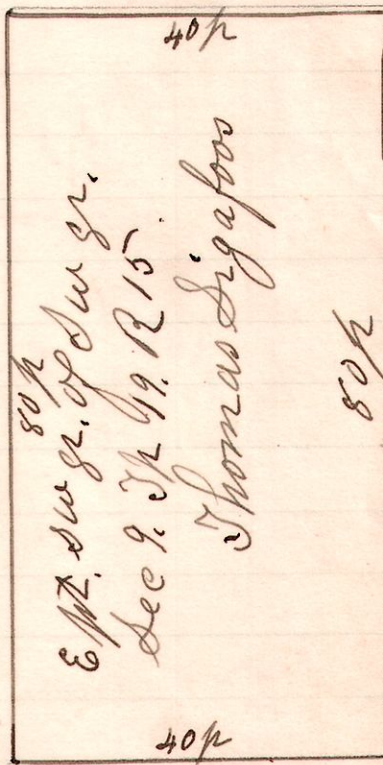 40p
80p
E pt. SW gr. of SW gr.
Sec 9. Tp 19. R 15.
Thomas Sigafoos
80p
40p